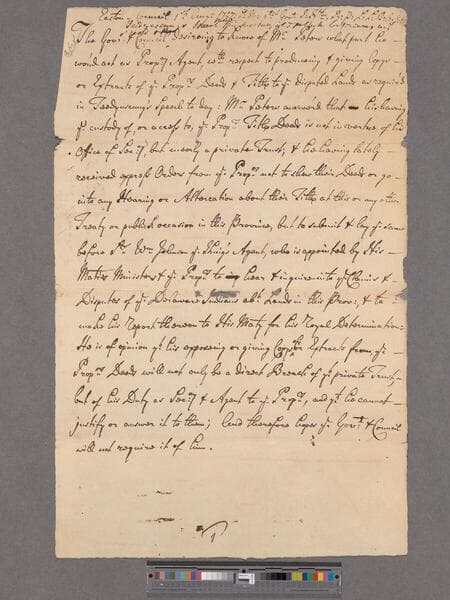 Easton, Council 1st Augt 1757
Teedyuscung's Speech
The Govr. & Council desiring to know of Mr. Peters what part he
would act as Propry Agent, wth respect to producing & giving Copys
or Extracts of ye Propry Deeds & Titles to ye disputed Lands as required
in Teedyuscung's Speech to day: Mr. Peters answered that his having
ye custody of, or access to, ye Propry Title Deeds is not in vertue of his
Office of Secry but meerly a private Trust, & he having lately
received express Orders from ye Proprs not to shew their Deeds or go
into any Hearing or Altercation about their Titles at this or any other
Treaty or publick occasion in this Province, but to submit & lay ye same
before Sr. Wm. Johnson ye King's Agent, who is appointed by His
Maties Ministers & ye Proprs to hear & inquire into ye Claims &
Disputes of ye Delaware Indians abt. Lands in this Prov: & to
make his Report thereon to His Maty for his Royal Determination:
He is of opinion yt his exposing or giving Copys or Extracts from, ye
Propry Deeds will not only be a direct Breach of ye private Trust,
but of his Duty as Secry & Agent to ye Proprs, and yt he cannot
justify or answer it to them; And therefore hopes ye Govr. & Council
will not require it of him.